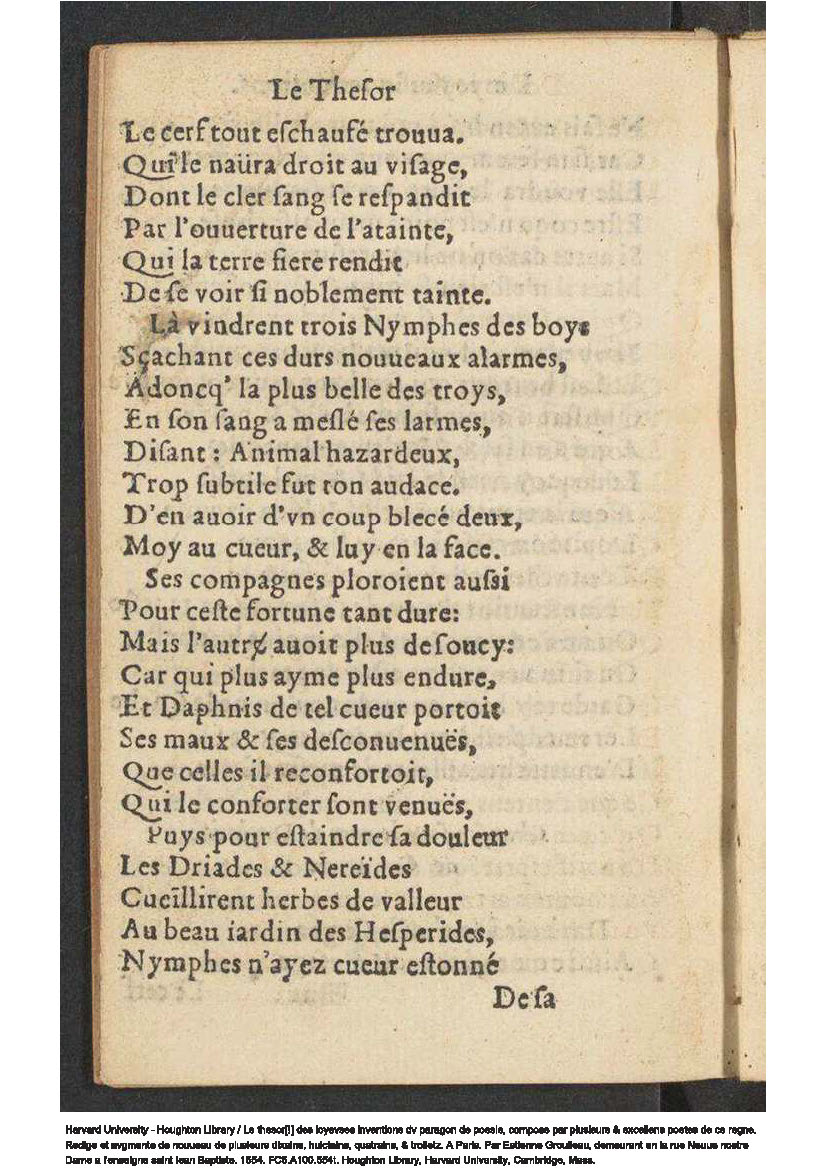 Le Theſor
Le cerf tout eſchaufé trouua.
Qui le naüra droit au viſage,
Dont le cler ſang ſe reſpandit
Par l'ouuerture de l'atainte,
Qui la terre fiere rendit
De ſe voir ſi noblement tainte.
Là vindrent trois Nymphes des boys
Sçachant ces durs nouueaux alarmes,
Adoncq' la plus belle des troys,
En ſon ſang a meſlé ſes larmes,
Diſant : Animal hazardeux,
Trop ſubtile fut ton audace.
D'en auoir d'vn coup blecé deux,
Moy au cueur, & luy en la face.
Ses compagnes ploroient auſsi
Pour ceſte fortune tant dure:
Mais l'autrɇ auoit plus de ſoucy:
Car qui plus ayme plus endure,
Et Daphnis de tel cueur portoit
Ses maux & ſes deſconuenuës,
Que celles il reconfortoit,
Qui le conforter ſont venuës,
Puys pour eſtaindre ſa douleur
Les Driades & Nereïdes
Cueïllirent herbes de valleur
Au beau iardin des Heſperides,
Nymphes n'ayez cueur eſtonné
De ſa
Harvard University - Houghton Library / Le thesor[!] des ioyevses inventions dv paragon de poesie, compose par plusieurs & excellens poetes de ce regne.
Redige et avgmente de nouueau de plusieurs dixains, huictains, quatrains, & trolletz. A Paris. Par Estienne Groulleau, demeurant en la rue Neuue nostre
Dame a l'enseigne saint Iean Baptiste. 1554. FC5.A100.554t. Houghton Library, Harvard University, Cambridge, Mass.